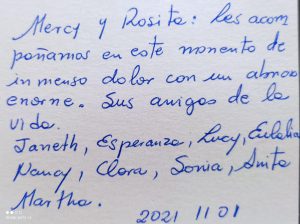 Mercy y Rosita: les acom
pañamos en este momento de
inmenso dolor con un abrazo
enorme. Sus amigas de la
vida.
Janeth, Esperanza, Lucy, Eulalia
Nancy, Clara, Sonia, Anita
Martha.
2021 11 01